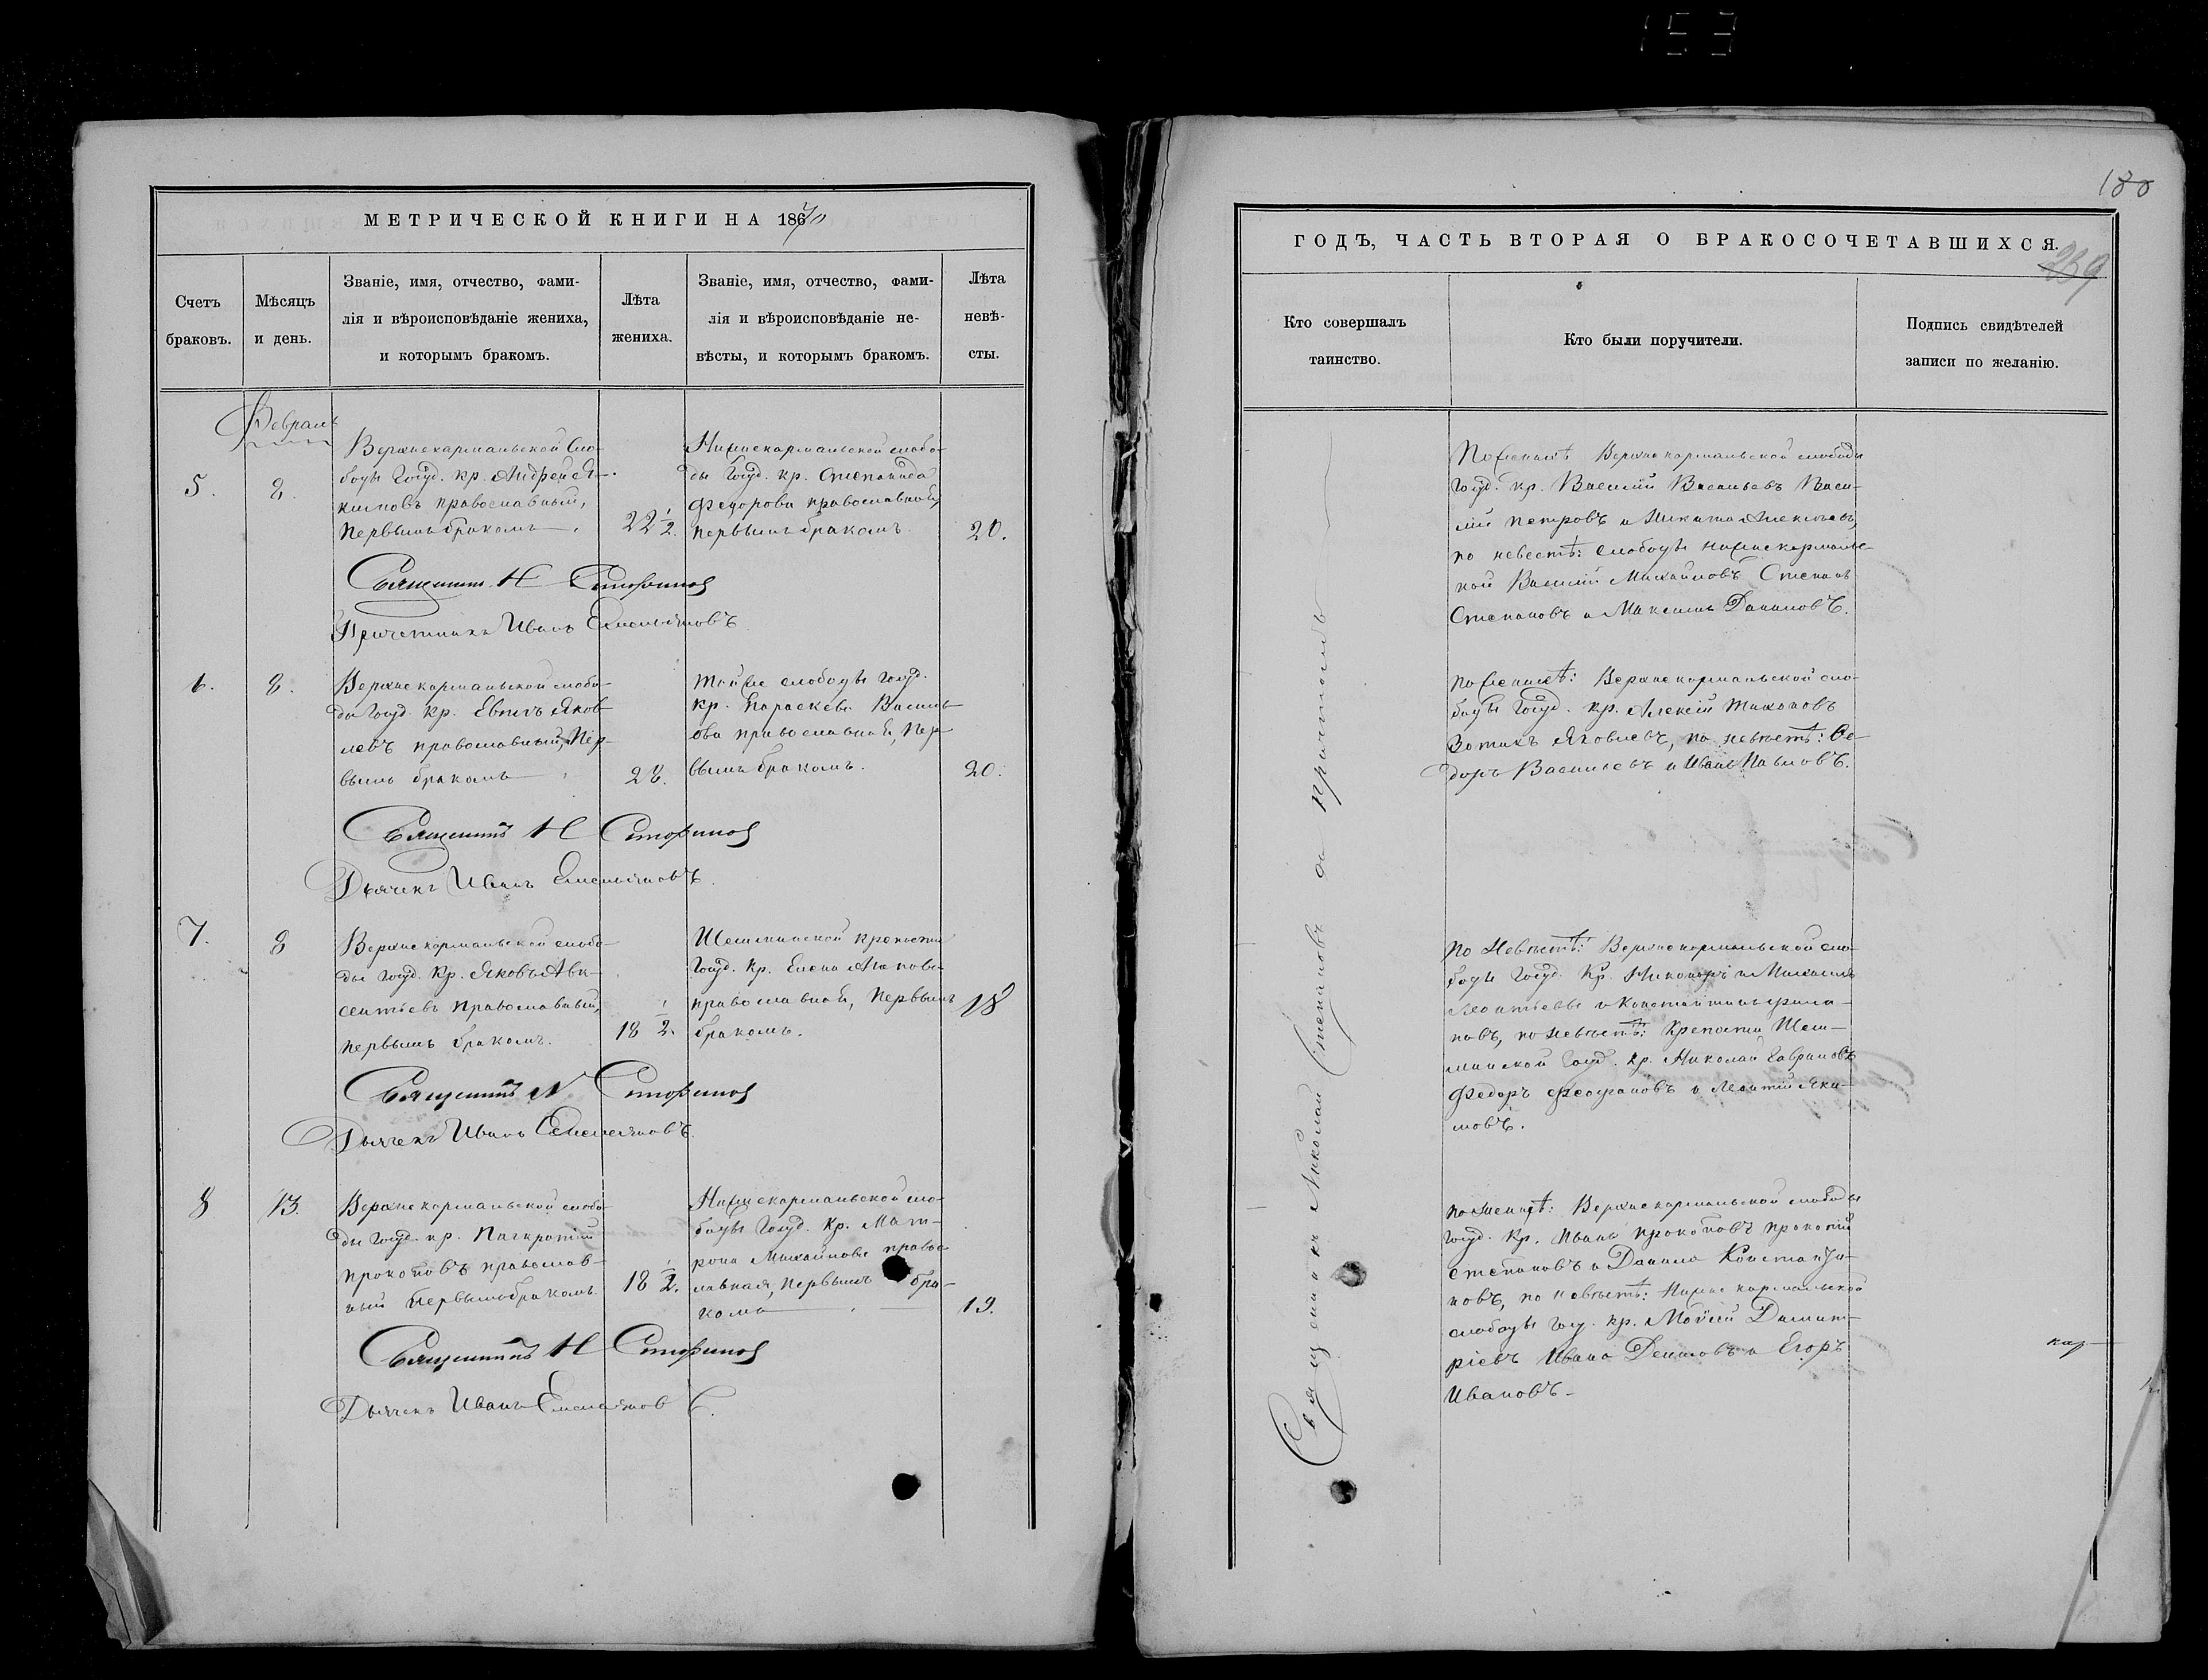 153
180
МЕТРИЧЕСКОЙ КНИГИ НА 1870
Счетъ
браковъ.
Мѣсяцъ
и день.
Званіе, имя, отчество, фами-
лія и вѣроисповѣданіе жениха,
и которымъ бракомъ.
Лѣта
жениха.
Званіе, имя, отчество, фами-
лія и вѣроисповѣданіе не-
вѣсты, и которымъ бракомъ.
Лѣта
невѣ-
сты.
Февраль
5.
8.
Верхнекармальской Сло-
боды Госуд. кр. Андрей Я-
кимовъ православный,
первымъ бракомъ
22 1/2.
Нижнекармальской слобо-
ды Госуд. кр. Степанида
Федорова православной,
первымъ бракомъ
20.
Священник Н
Причетникъ Иванъ Емельяновъ
6.
8.
Верхнекармальской слобо-
ды Госуд. кр. Евтихъ Яков
левъ православный, пер-
вымъ бракомъ
28.
Тойже слободы Госуд.
кр. Параскева Василь-
ева православной, пер-
вымъ бракомъ.
20.
Священникъ Н
Дьячекъ Иванъ Емельяновъ.
7.
8
Верхнекармальской слобо-
ды Госуд. кр. Яковъ Авк-
сентьевъ православный,
первымъ бракомъ.
18 1/2.
Шешминской крепости
Госуд. кр. Елена
православной, первымъ
бракомъ.
18
Священникъ Н
Дьячекъ Иванъ Емельяновъ.
8
13.
Верхнекармальской слобо-
ды Госуд. кр. Панкратій
Прокоповъ православ-
ный первымъ бракомъ.
18 1/2.
Нижнекармальской сло-
боды Госуд. кр. Мат-
рона Михайлова право-
славная, первымъ бра-
комъ
19.
Священникъ Н
Дьячекъ Иванъ Емельяновъ.
ГОДЪ, ЧАСТЬ ВТОРАЯ О БРАКОСОЧЕТАВШИХСЯ.
259
Кто совершалъ
таинство.
Кто были поручители.
Подпись свидѣтелей
записи по желанію.
Священникъ Николай Степановъ съ причтомъ
По женихѣ Верхнекармальской слободы
Госуд. кр. Василій Васильевъ Васи-
лій Петровъ и Никита Алексѣевъ,
по невестѣ: слободы нижнекармаль-
ской Василій Михайловъ Степанъ
Степановъ и Максимъ Даниловъ.
По женихѣ: Верхнекармальской сло-
боды Госуд. кр. Алексій Тихоновъ
Зотикъ Яковлевъ, по невѣстѣ: Фе-
доръ Васильевъ и Иванъ Павловъ.
По Невѣстѣ: Верхнекармальской сло-
боды Госуд. Кр. Никоноръ и Михаилъ
Леонтьевы и Константинъ Фили-
повъ, по невѣстѣ: Крепости Шеш-
минской Госуд. кр. Николай Гавриловъ
Федоръ Феофановъ и Леонтій Яки-
мовъ.
По женихѣ: Верхнекармальской слободы
Госуд. Кр. Иванъ Прокоповъ Прокопій
Степановъ и Данило Константи-
новъ, по невѣстѣ: Нижнекармальской
слободы Госу. кр. Моѵсей Димит-
ріевъ Иванъ Денисовъ и Егоръ
Ивановъ.